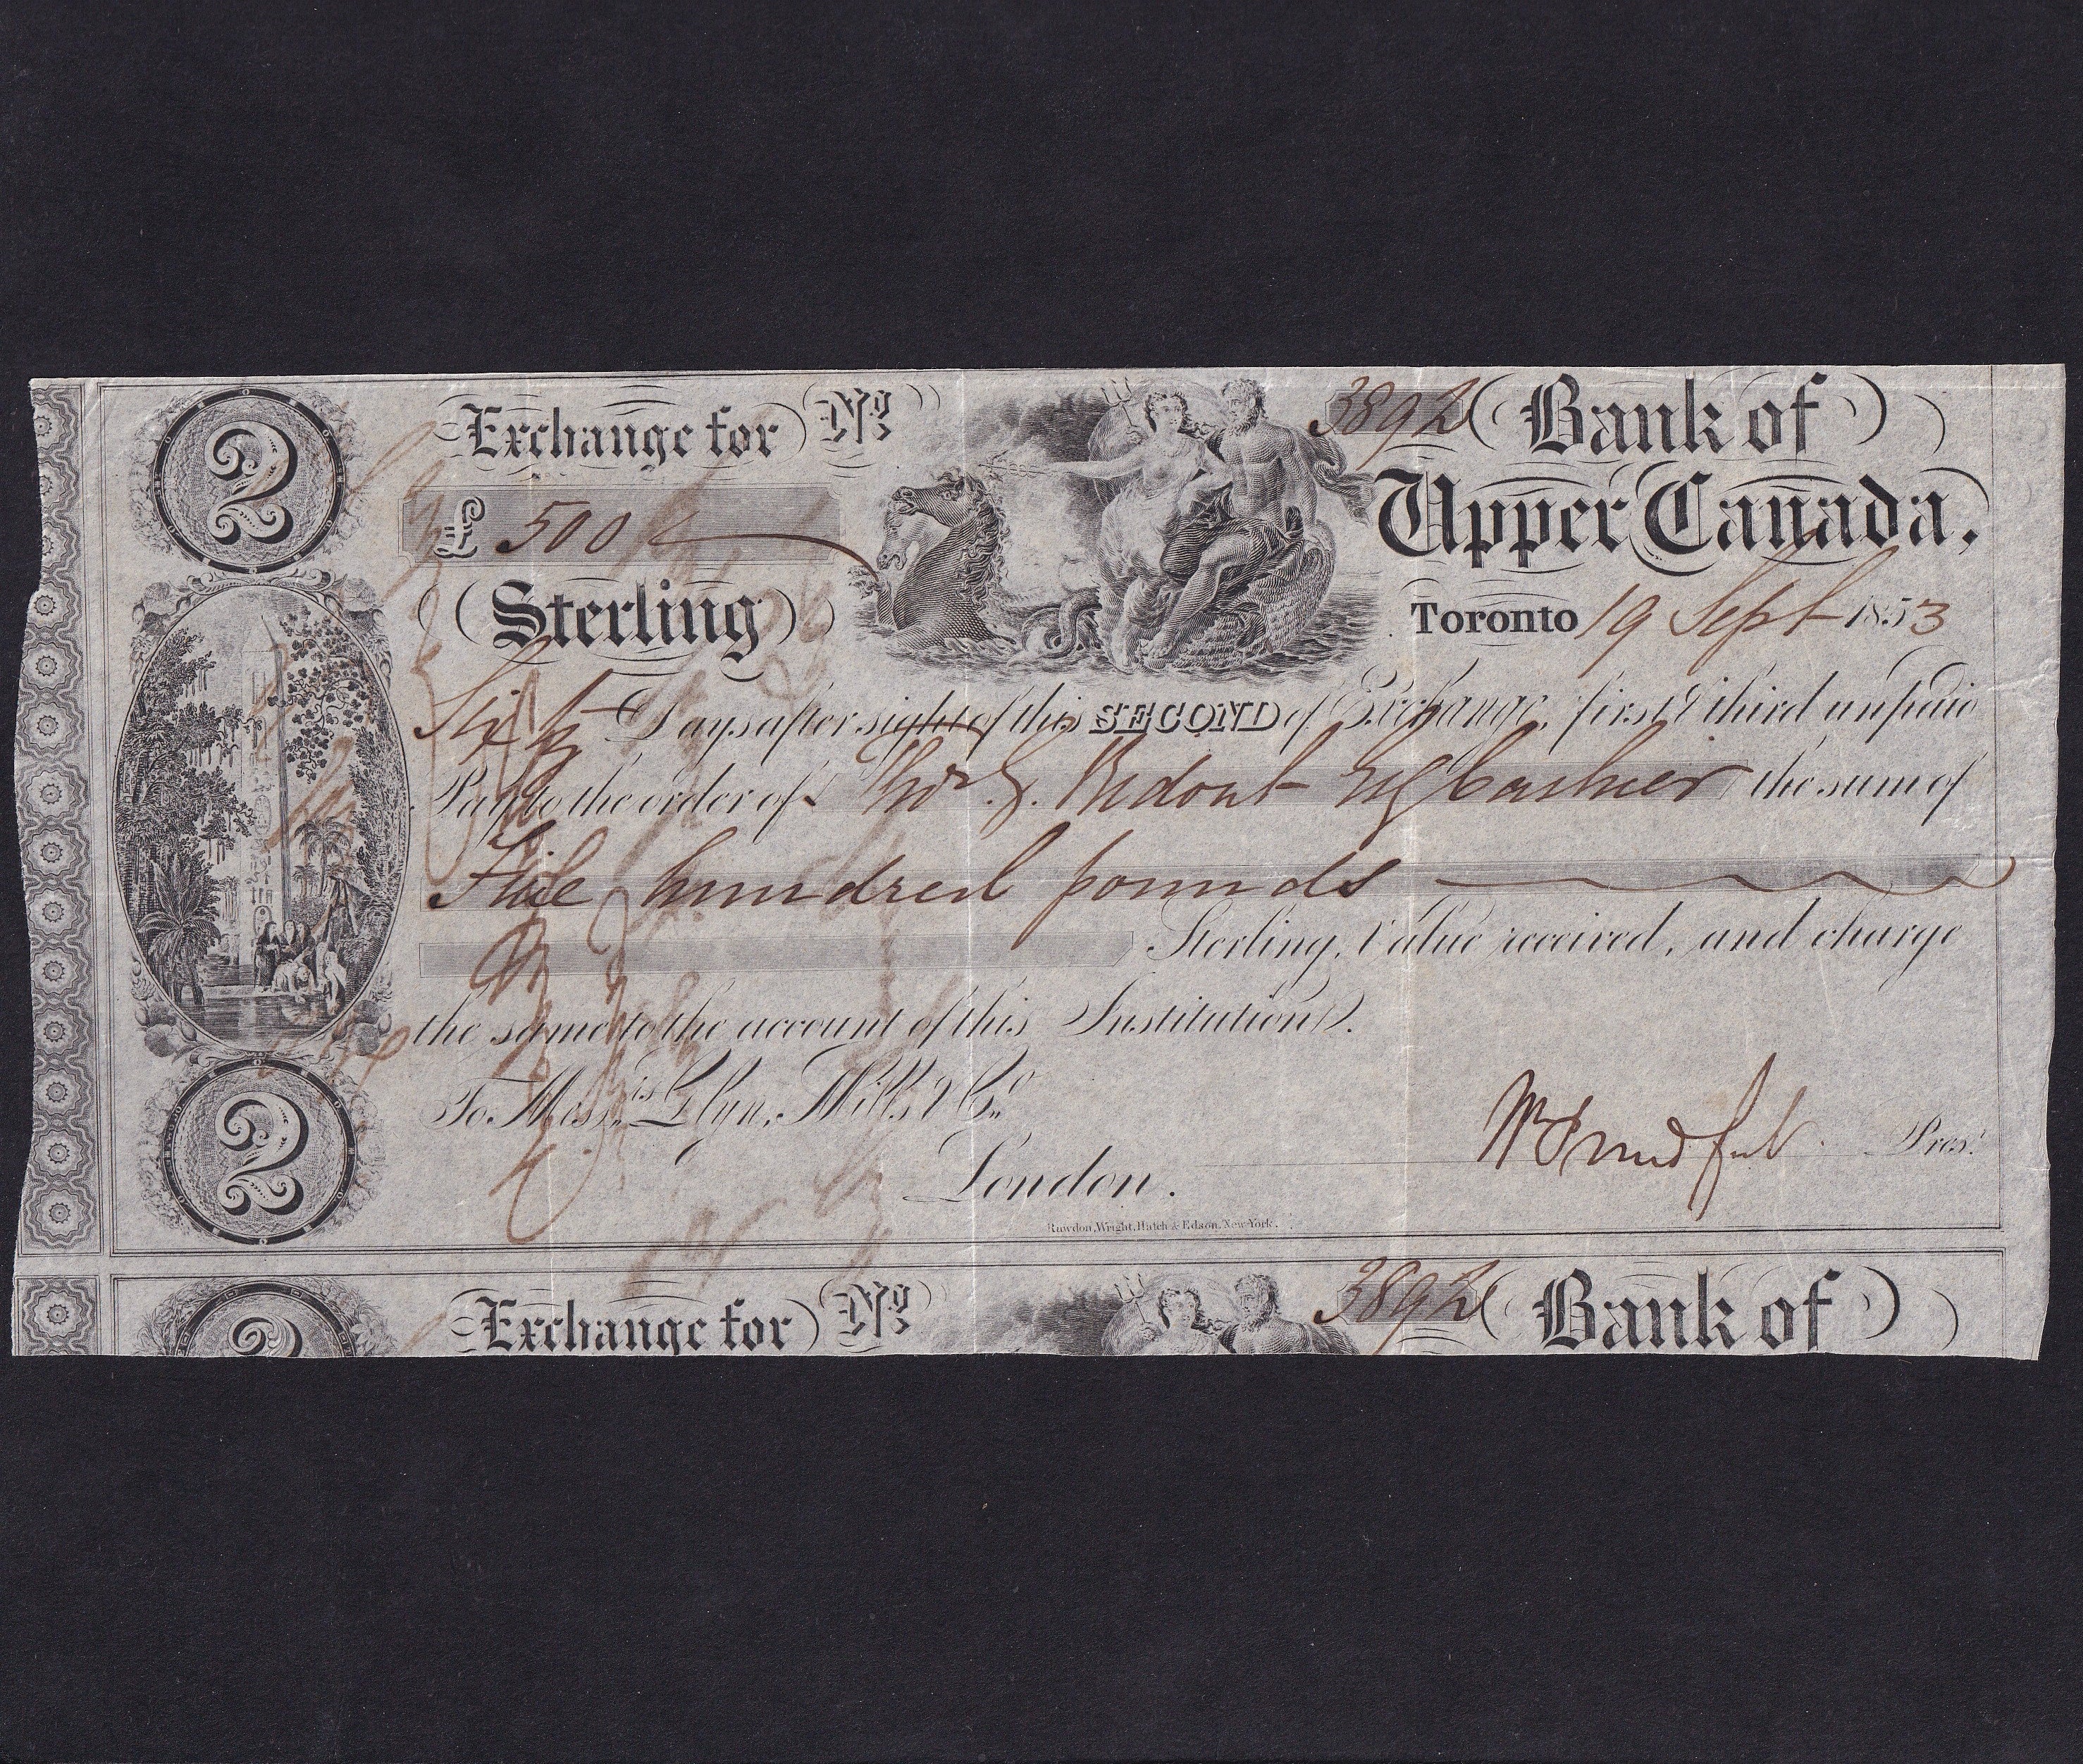 2
Exchange for No 3892 Bank of
£ 500 Upper Canada.
Sterling Toronto 19 Sept 1853
Sixty Days after sight of this SECOND of Exchange, first & third unpaid
Pay to the order of Thos. G. Ridout Esq Cashier the sum of
Five hundred pounds
Sterling, Value received, and charge
the same to the account of this Institution.
To Messrs Glyn, Mills & Co.
London.
Wm Proudfoot Prest
2
Rawdon, Wright, Hatch & Edson, New-York.
2 Exchange for No 3892 Bank of